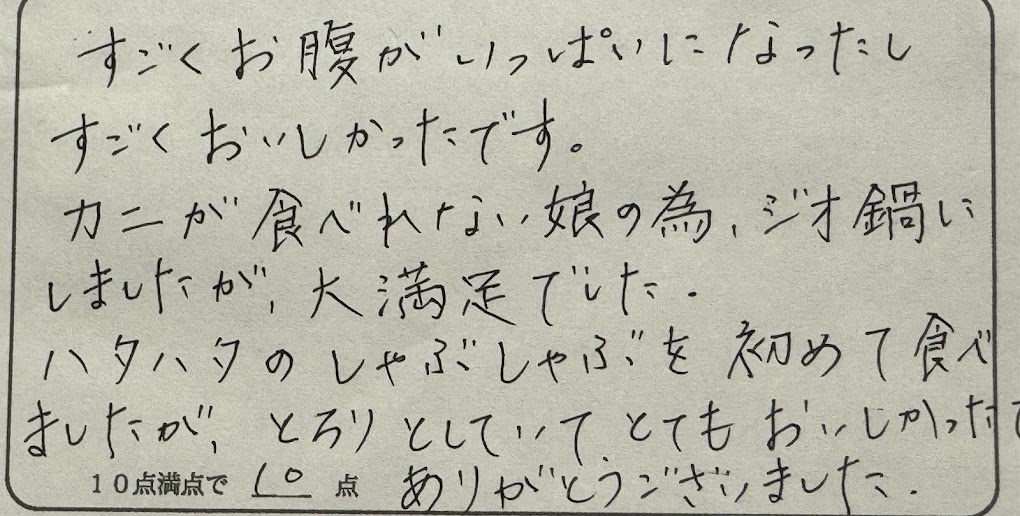 すごくお腹がいっぱいになったし
すごくおいしかったです。
カニが食べれない娘の為、ジオ鍋に
しましたが、大満足でした.
ハタハタのしゃぶしゃぶを初めて食べ
ましたが、とろりとしていて、とてもおいしかったで
10点満点で 10 点 ありがとうございました.